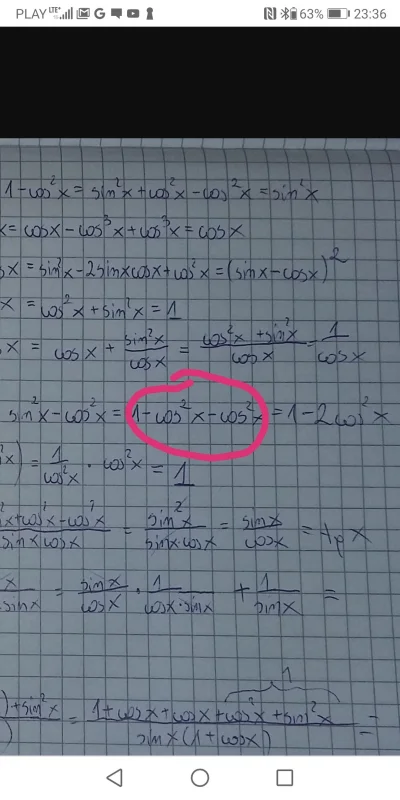 PLAY LTE+ 63% 23:36
1-cos²x = sin²x+cos²x-cos²x = sin²x
x = cosx-cos³x+cos³x = cosx
x = sin²x-2sinxcosx+cos²x = (sinx-cosx)²
x = cos²x+sin²x = 1
x = cosx + sin²x/cosx = cos²x+sin²x/cosx = 1/cosx
sin²x-cos²x = 1-cos²x-cos²x = 1-2cos²x
²x) = 1/cos²x · cos²x = 1
x+cos²x-cos²x/sinxcosx = sin²x/sinx·cosx = sinx/cosx = tgx
x/sinx = sinx/cosx · 1/cosx·sinx + 1/sinx =
1
)+sin²x/) = 1+cosx+cosx+cos²x+sin²x/sinx(1+cosx) =